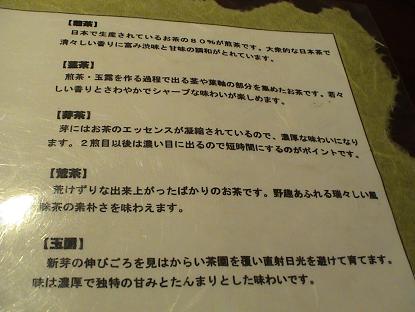 【煎茶】
日本で生産されているお茶の８０％が煎茶です。大衆的な日本茶で
清々しい香りに富み渋味と甘味の調和がとれています。
【茎茶】
煎茶・玉露を作る過程で出る茎や葉軸の部分を集めたお茶です。若々
しい香りとさわやかでシャープな味わいが楽しめます。
【芽茶】
芽にはお茶のエッセンスが凝縮されているので、濃厚な味わいになり
ます。２煎目以後は濃い目に出るので短時間にするのがポイントです。
【荒茶】
荒けずりな出来上がったばかりのお茶です。野趣あふれる瑞々しい風
味茶の素朴さを味わえます。
【玉露】
新芽の伸びごろを見はからい茶園を覆い直射日光を避けて育てます。
味は濃厚で独特の甘みとたんまりとした味わいです。